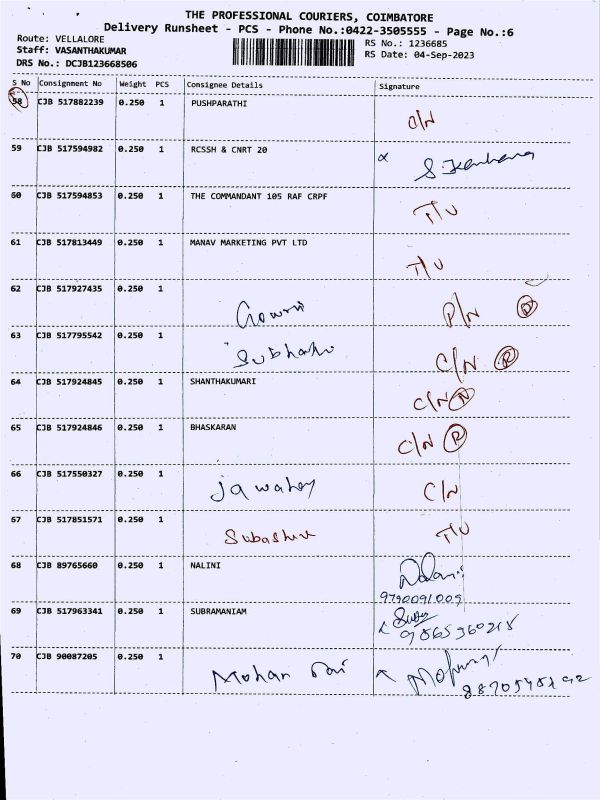 THE PROFESSIONAL COURIERS, COIMBATORE
Delivery Runsheet - PCS - Phone No.:0422-3505555 - Page No.:6
Route: VELLALORE
Staff: VASANTHAKUMAR
DRS No.: DCJB123668506
RS No.: 1236685
RS Date: 04-Sep-2023
S No Consignment No Weight PCS Consignee Details Signature
58 CJB 517882239 0.250 1 PUSHPARATHI C/N
59 CJB 517594982 0.250 1 RCSSH & CNRT 20
60 CJB 517594853 0.250 1 THE COMMANDANT 105 RAF CRPF T/U
61 CJB 517813449 0.250 1 MANAV MARKETING PVT LTD T/U
62 CJB 517927435 0.250 1 Gowri P/N R
63 CJB 517795542 0.250 1 C/N R
64 CJB 517924845 0.250 1 SHANTHAKUMARI C/N
65 CJB 517924846 0.250 1 BHASKARAN C/N R
66 CJB 517550327 0.250 1 Jawahey C/N
67 CJB 517851571 0.250 1 T/U
68 CJB 89765660 0.250 1 NALINI
9790091009
69 CJB 517963341 0.250 1 SUBRAMANIAM
70 CJB 90087205 0.250 1 Mohan